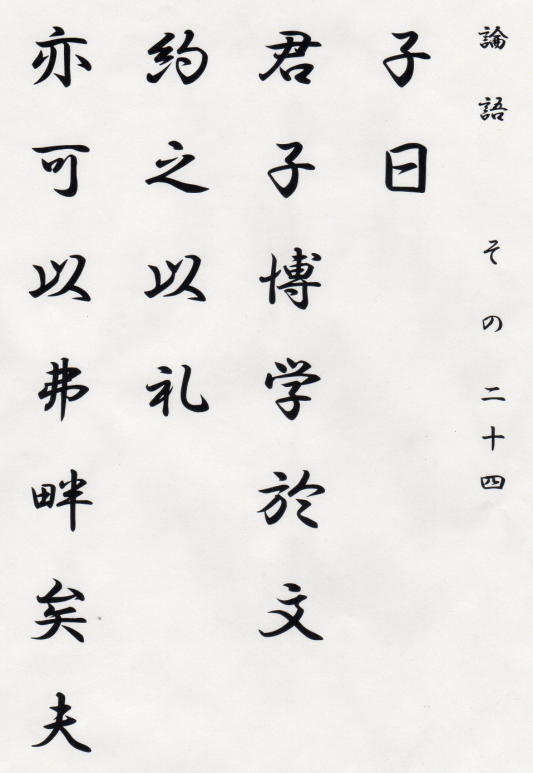 論語　その二十四
子曰
君子博学於文
約之以礼
亦可以弗畔矣夫